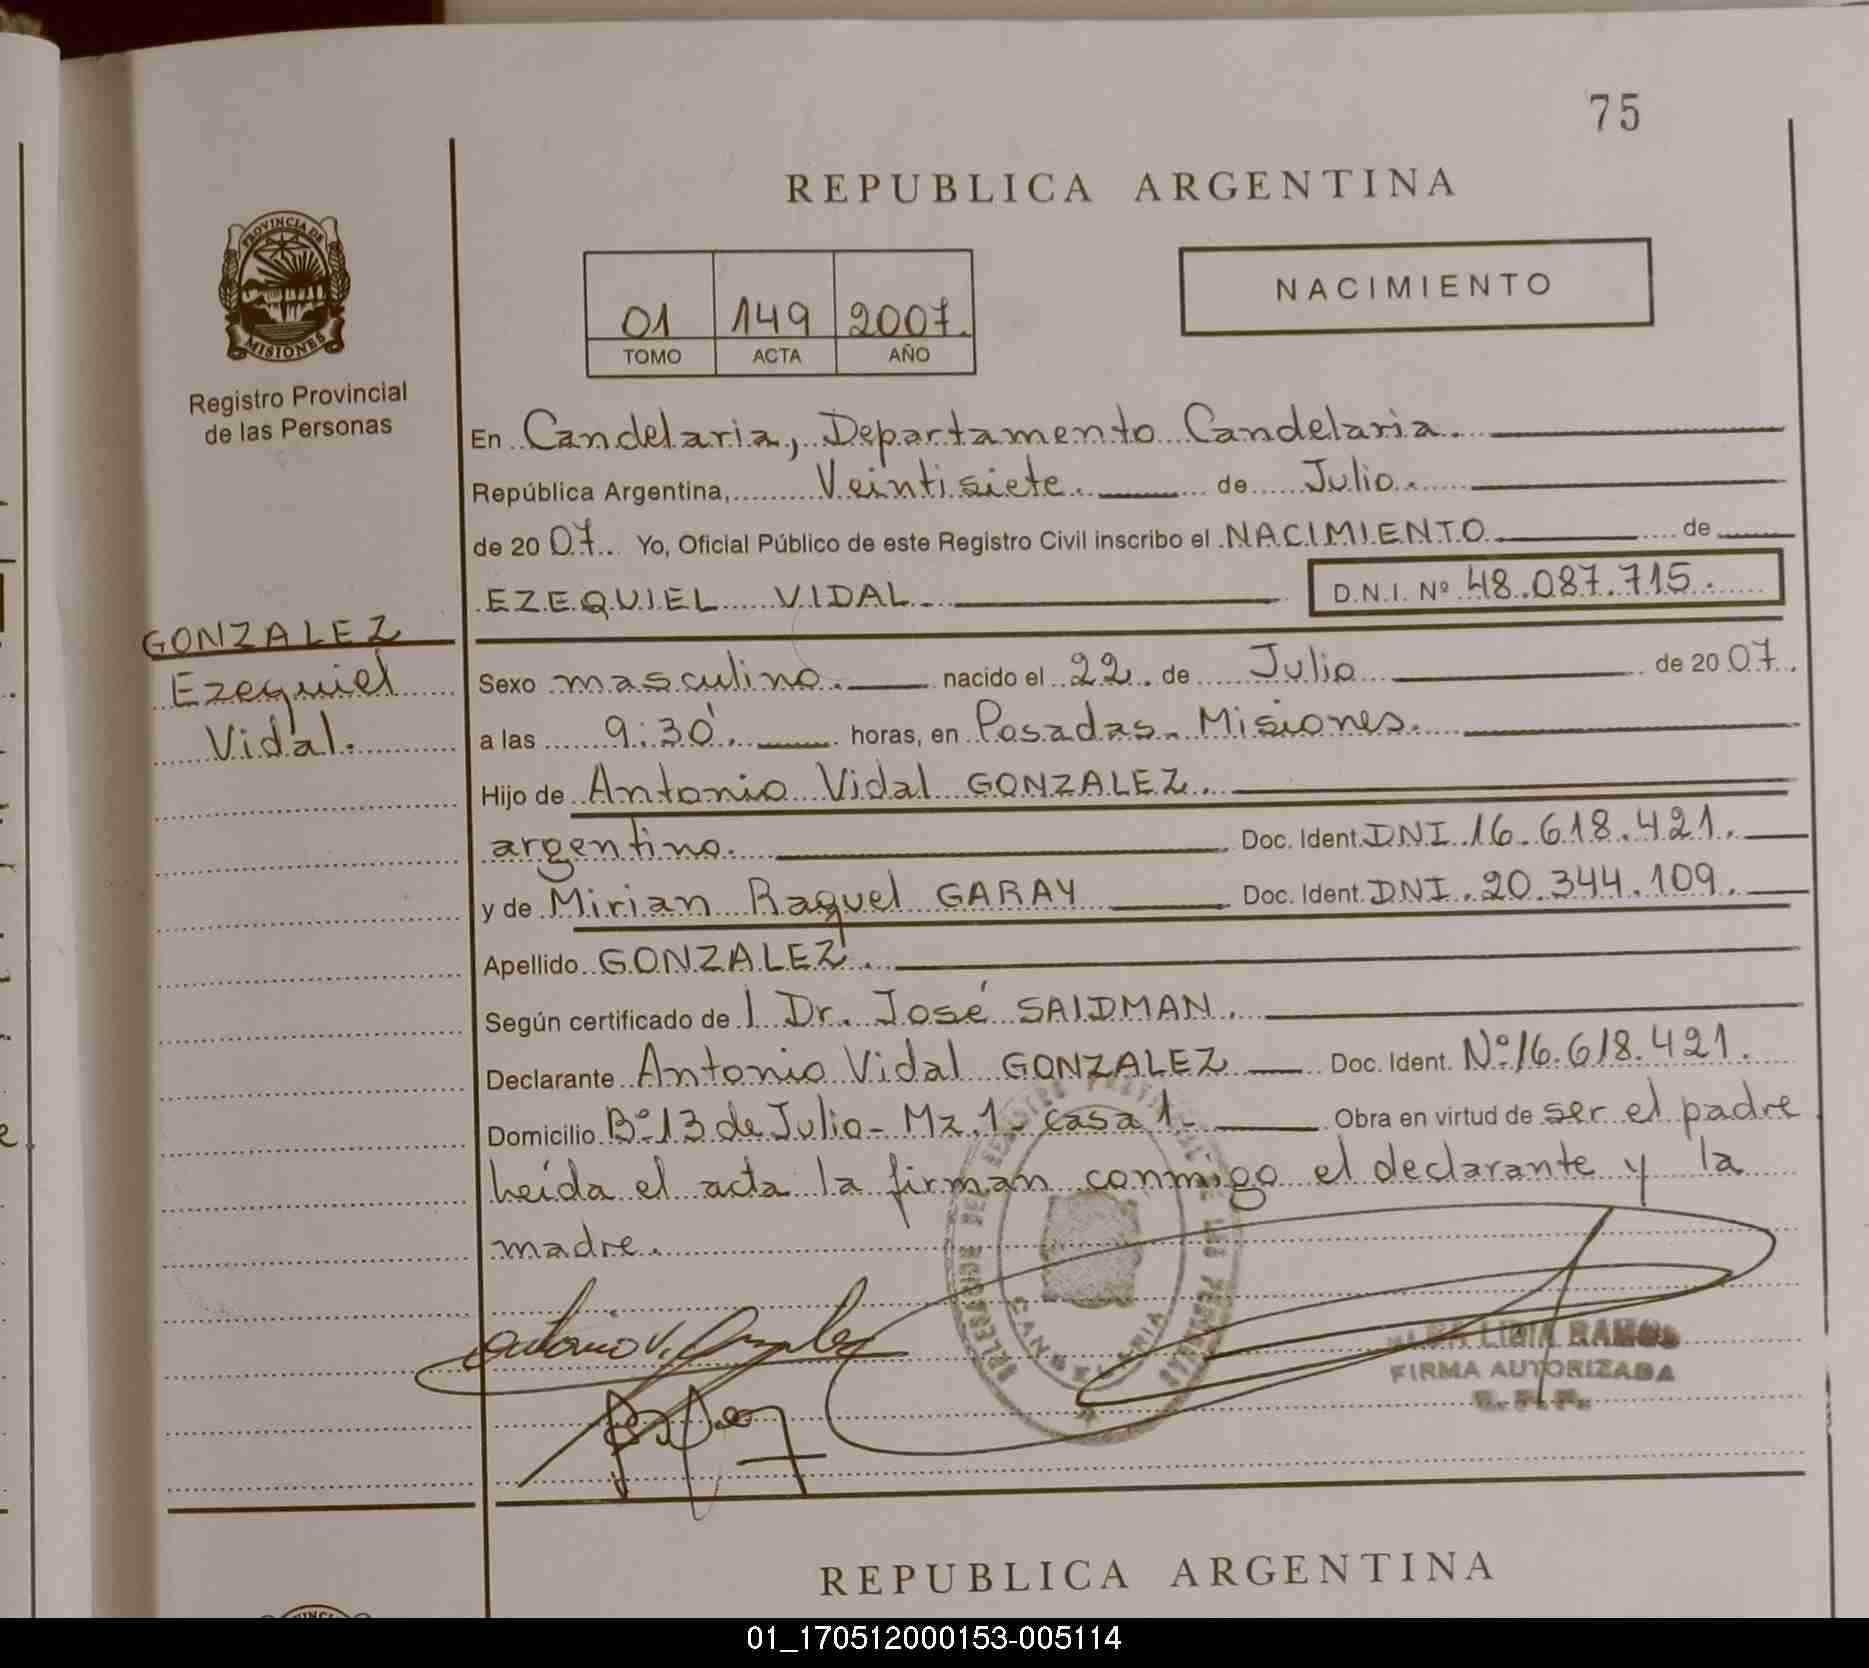 75
REPUBLICA ARGENTINA
PROVINCIA DE
MISIONES
Registro Provincial
de las Personas
01 149 2007.
TOMO ACTA AÑO
NACIMIENTO
En Candelaria, Departamento Candelaria.
República Argentina, Veintisiete. de Julio.
de 2007. Yo, Oficial Público de este Registro Civil inscribo el NACIMIENTO de
EZEQUIEL VIDAL. D.N.I. Nº 48.087.715.
GONZALEZ
Ezequiel
Vidal.
Sexo masculino. nacido el 22. de Julio de 2007.
a las 9:30'. horas, en Posadas. Misiones.
Hijo de Antonio Vidal GONZALEZ.
argentino. Doc. Ident. DNI 16.618.421.
y de Mirian Raquel GARAY Doc. Ident. DNI. 20.344.109.
Apellido GONZALEZ.
Según certificado de l Dr. José SAIDMAN.
Declarante Antonio Vidal GONZALEZ Doc. Ident. Nº 16.618.421.
Domicilio Bº 13 de Julio - Mz. 1 - casa 1 - Obra en virtud de ser el padre
Leída el acta la firman conmigo el declarante y la
madre.
CANDELARIA
Antonio V. Gonzalez
LIDIA RAMOS
FIRMA AUTORIZADA
REPUBLICA ARGENTINA
01_170512000153-005114